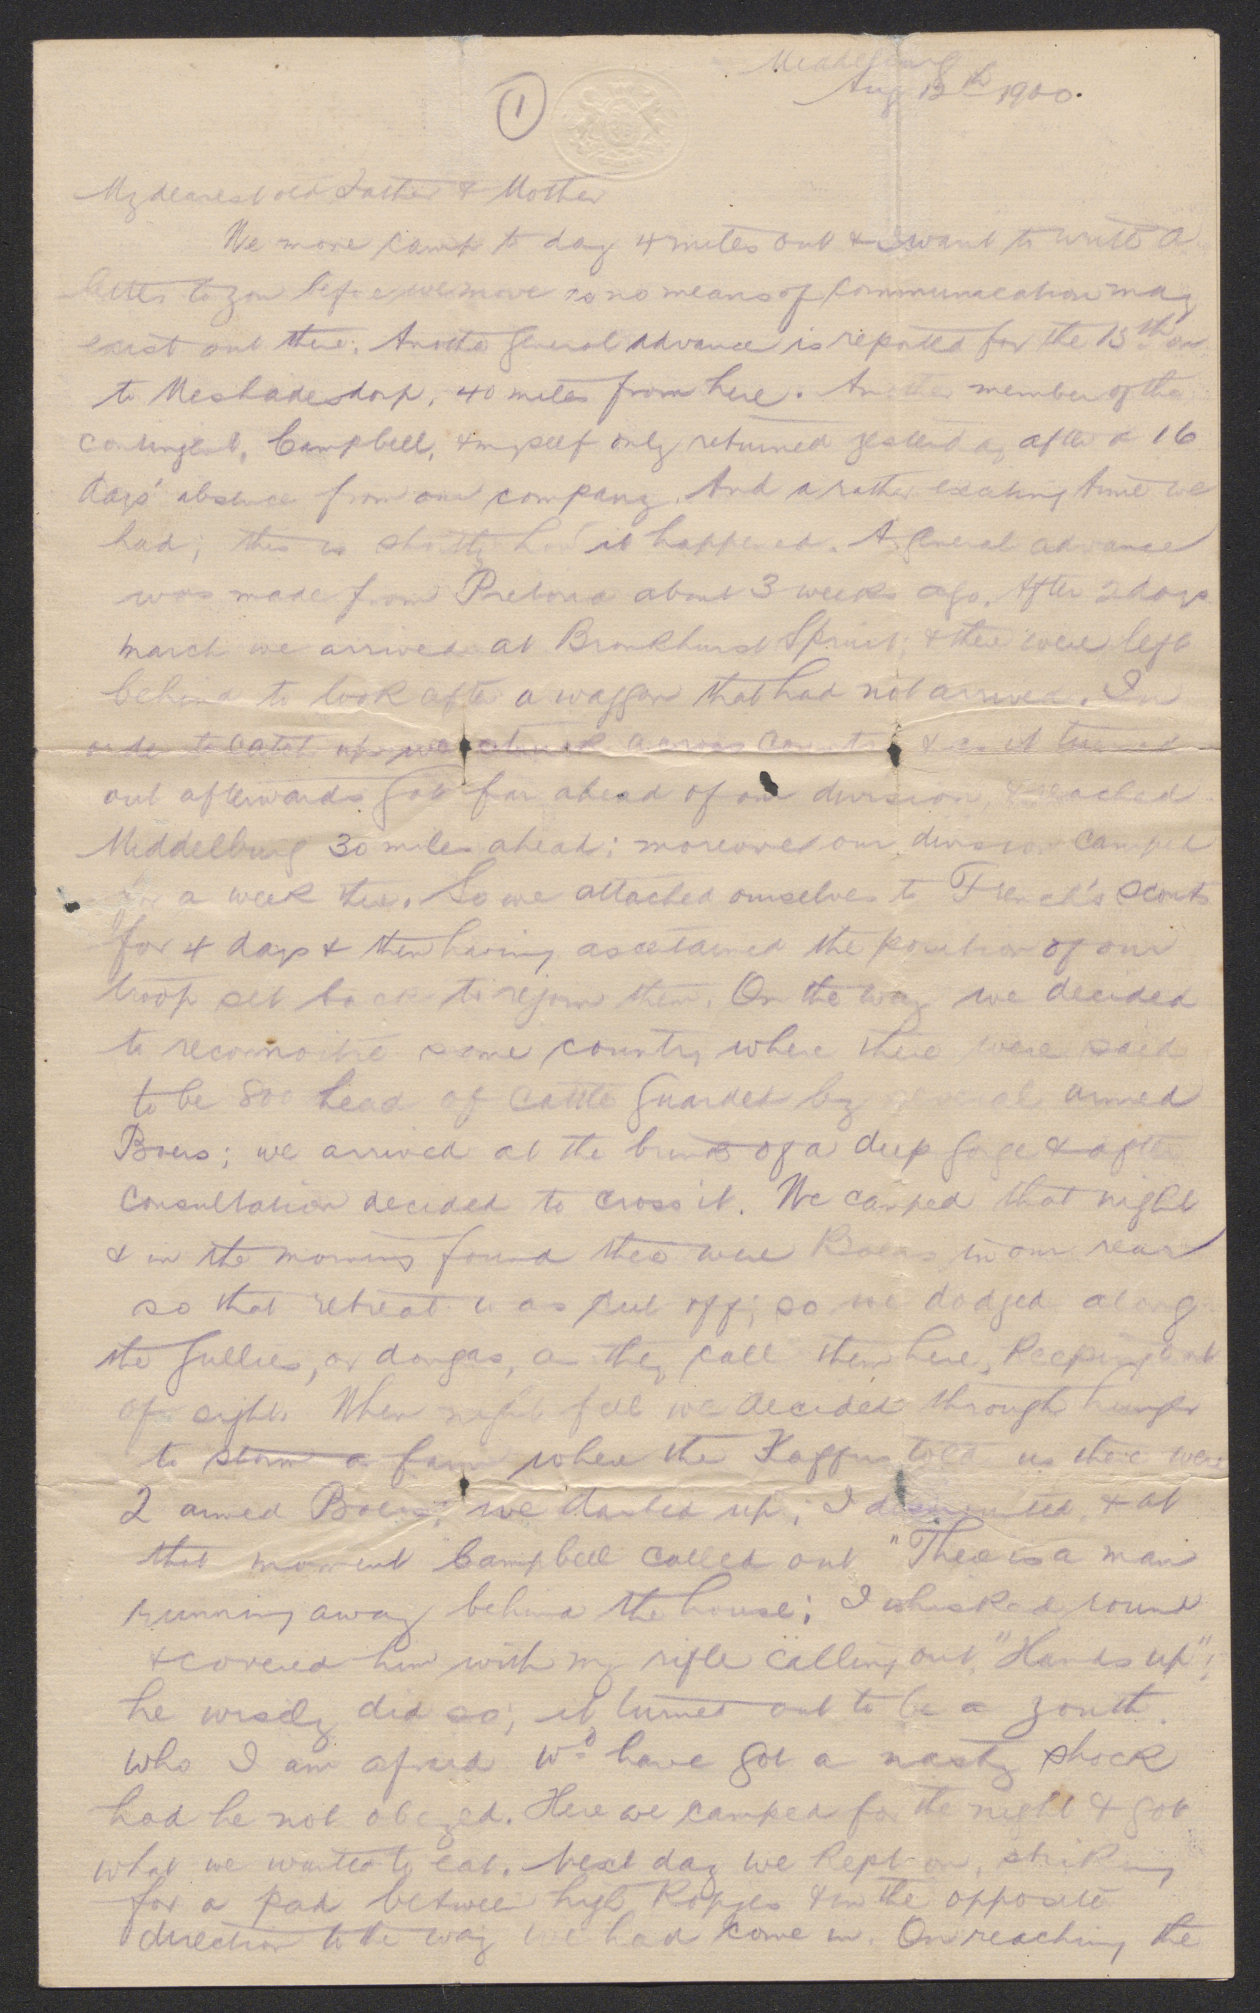 Middelburg
Aug 13th 1900.
1
My dearest old Father & Mother
We move camp to day 4 miles out & I want to write a
letter to you before we move as no means of communication may
exist out there. Another general advance is reported for the 15th on
to Meshadesdorp, 40 miles from here. Another member of the
contingent, Campbell, & myself only returned yesterday after a 16
days' absence from our company. And a rather exciting time we
had; this is shortly how it happened. A general advance
was made from Pretoria about 3 weeks ago. After 2 days
march we arrived at Bronkhurst Spruit, & there were left
behind to look after a waggon that had not arrived. In
order to catch up we struck across country & as it turned
out afterwards got far ahead of our division, & reached
Middelburg 30 miles ahead; moreover our division camped
for a week there. So we attached ourselves to French's scouts
for 4 days & then having ascertained the position of our
troop set back to rejoin them. On the way we decided
to reconnoitre some country where there were said
to be 800 head of cattle guarded by several armed
Boers; we arrived at the brink of a deep gorge & after
consultation decided to cross it. We camped that night
& in the morning found there were Boers in our rear
so that retreat was cut off; so we dodged along
the gullies, or dongas, as they call them here, keeping out
of sight. When night fell we decided through hunger
to storm a farm where the Kaffirs told us there were
2 armed Boers; we dashed up; I dismounted, & at
that moment Campbell called out "There is a man
running away behind the house; I whisked round
& covered him with my rifle calling out, "Hands up";
he wisely did so; it turned out to be a youth.
who I am afraid wd have got a nasty shock
had he not obeyed. Here we camped for the night & got
what we wanted to eat. Next day we kept on, striking
for a pad between high kopjes & in the opposite
direction to the way we had come in. On reaching the